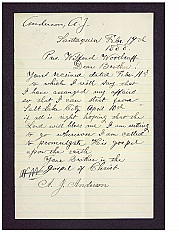 Anderson, A. J.
Santaquin Feby 17th
1886.
Pres Wilford Woodruff
Dear Brother.
Yours received dated Feby 11th
to which I will say that
I have arranged my affairs
so that I can start from
Salt Lake City April 10th
if all is right hoping that the
Lord will bless me I am willing
to go wherever I am called
to promulgate this gospel
upon the earth
Your Brother in the
Gospel of Christ.
A. J. Anderson